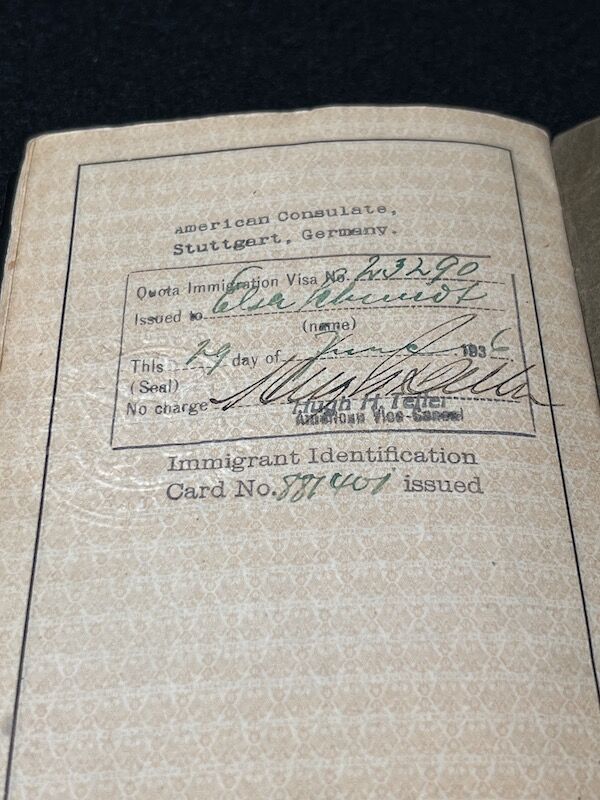 American Consulate,
Stuttgart, Germany.
Quota Immigration Visa No. 23290
Issued to Elsa Schmidt
(name)
This 29 day of June 1936
(Seal)
No charge
Hugh H. Teller
American Vice-Consul
Immigrant Identification
Card No. 881401 issued